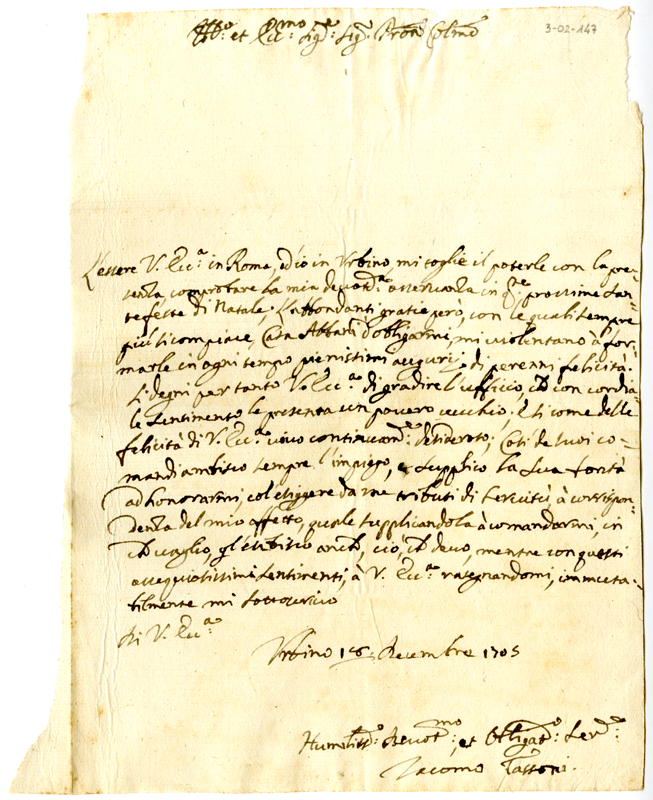 3-02-147
Ill.mo et Ecc.mo Sig.re Sig.re Pron Col.mo
L'essere V. Ecc.a in Roma, ed io in Urbino, mi toglie il poterle con la pre=
senza, comprobare la mia devot.a osservanza in q.te prossime San=
te feste di Natale; L'abbondanti gratie però, con le quali sempre
più si compiace, Casa Albani d'obligarmi, mi violentano à for=
marle in ogni tempo pienissimi augurij di perenni felicità.
Si degni per tanto V. Ecc.a di gradire l'uffico, ch con cordia=
le sentimento le presenta un povero vecchio; E si come delle
felicità di V. Ecc.a vivo continuam.te desideroso; Così de suoi co=
mandi ambisco sempre l'impiego, e supplico la sua bontà
ad honorarmi, col esiggere da me tributi di servitù, à corrispon=
denza del mio affetto, quale supplicandola à comandarmi, in
ch vaglio, gl'esibisco anch, ciò, ch devo, mentre con questi
ossequiosissimi sentimenti, à V. Ecc.a rasegnandomi, immuta=
bilmente mi sottoscrivo
Di V. Ecc.a
Urbino Decembre 1705
Humiliss.o Devot.mo et Obligat.o Ser.re
Iacomo Tassoni